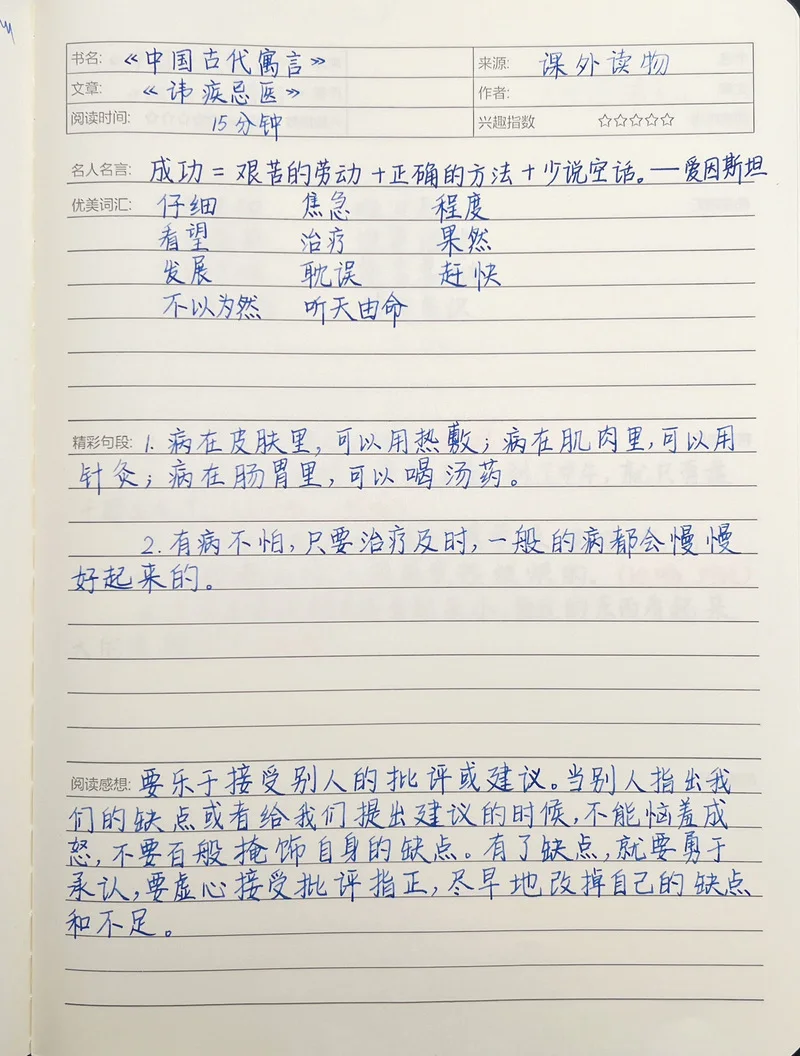 书名: 《中国古代寓言》 来源: 课外读物
文章: 《讳疾忌医》 作者:
阅读时间: 15分钟 兴趣指数 ☆☆☆☆☆
名人名言: 成功=艰苦的劳动+正确的方法+少说空话。——爱因斯坦
优美词汇: 仔细 焦急 程度
看望 治疗 果然
发展 耽误 赶快
不以为然 听天由命
精彩句段: 1. 病在皮肤里,可以用热敷;病在肌肉里,可以用
针灸;病在肠胃里,可以喝汤药。
2. 有病不怕,只要治疗及时,一般的病都会慢慢
好起来的。
阅读感想: 要乐于接受别人的批评或建议。当别人指出我
们的缺点或者给我们提出建议的时候,不能恼羞成
怒,不要百般掩饰自身的缺点。有了缺点,就要勇于
承认,要虚心接受批评指正,尽早地改掉自己的缺点
和不足。